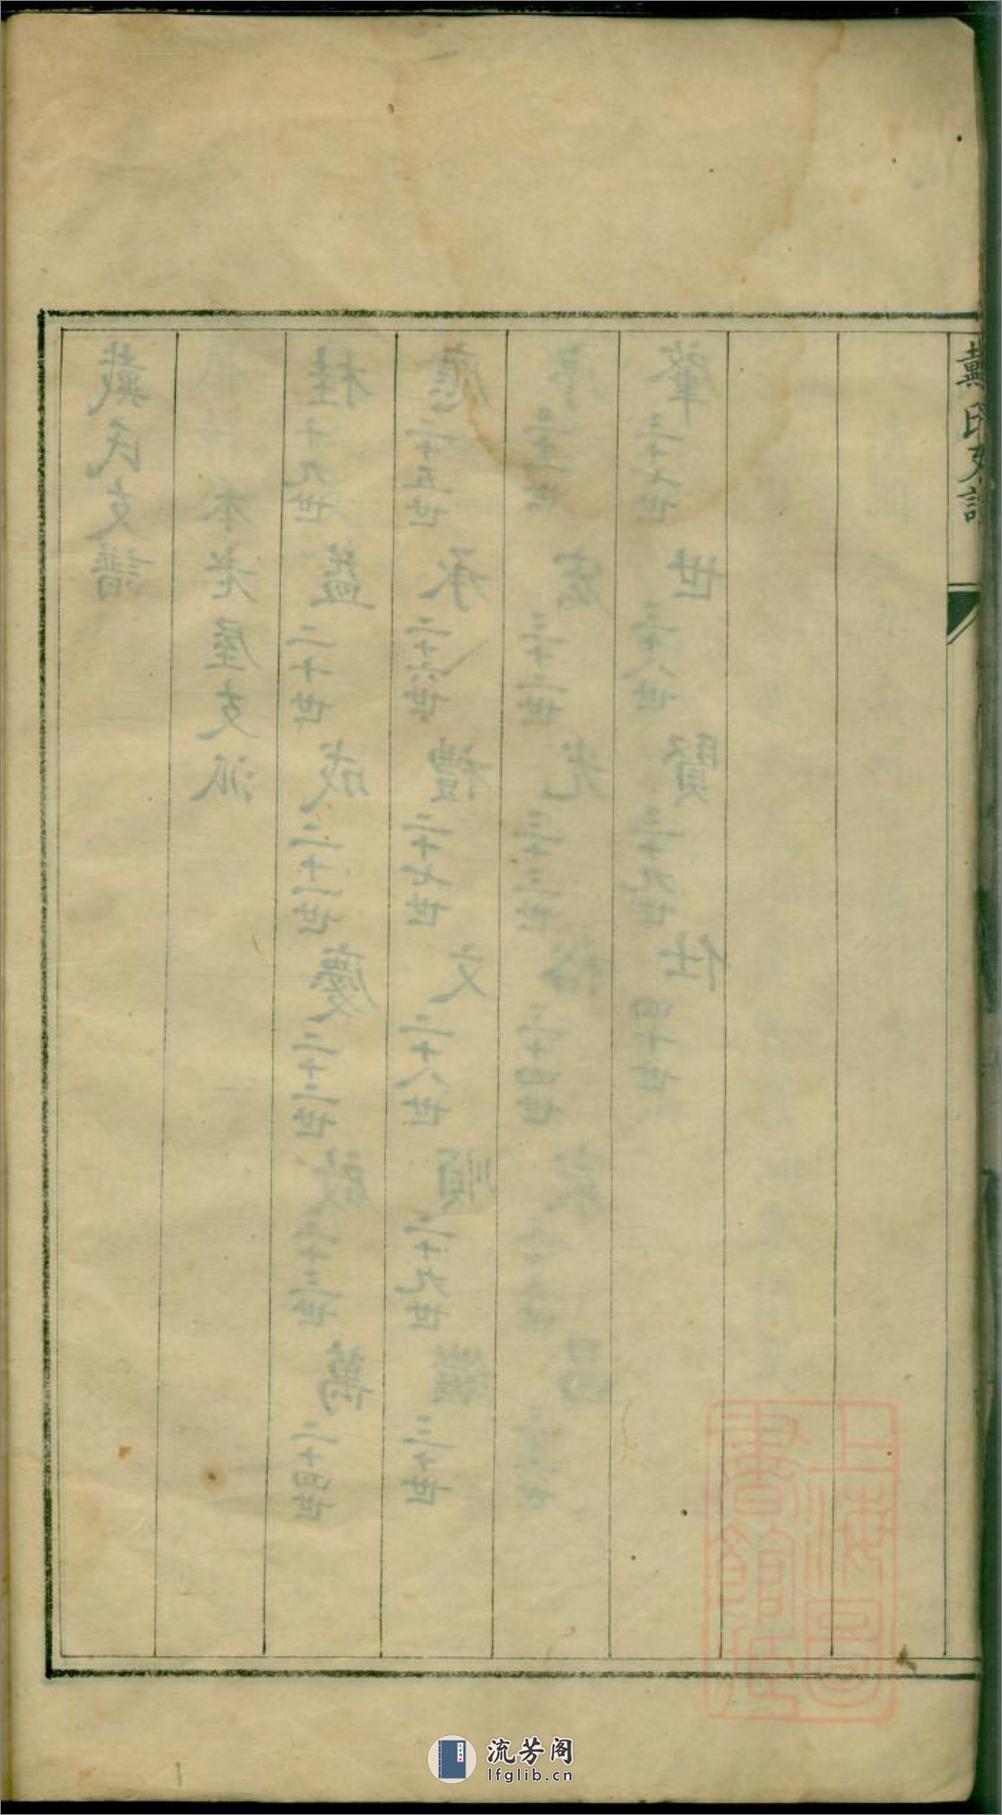 戴氏支譜
戴氏支譜
本老屋支派
桂 十九世 二十世 成 二十一世 慶 二十二世 啟 二十三世 萬 二十四世
應 二十五世 承 二十六世 禮 二十七世 文 二十八世 順 二十九世 三十世
三十一世 宏 三十二世 光 三十三世 裕 三十四世 家 昌
肇 三十七世 世 三十八世 賢 三十九世 仕 四十世
上海圖
書館藏
流芳阁
lfglib.cn